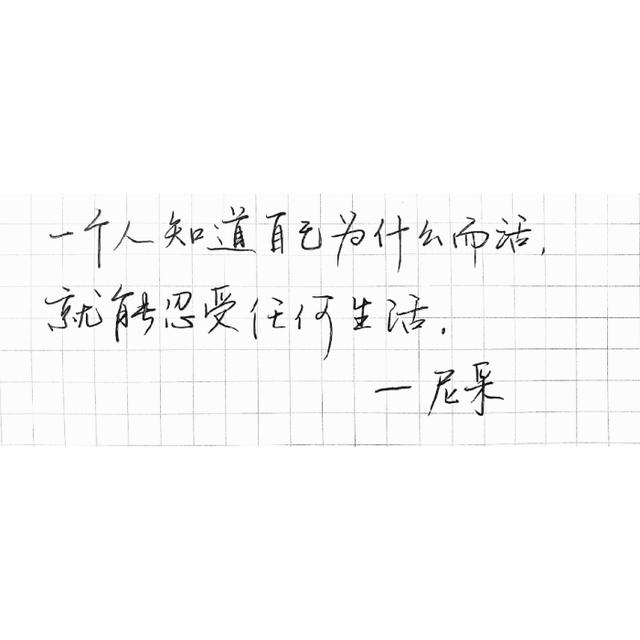 一个人知道自己为什么而活,
就能忍受任何生活.
—尼采